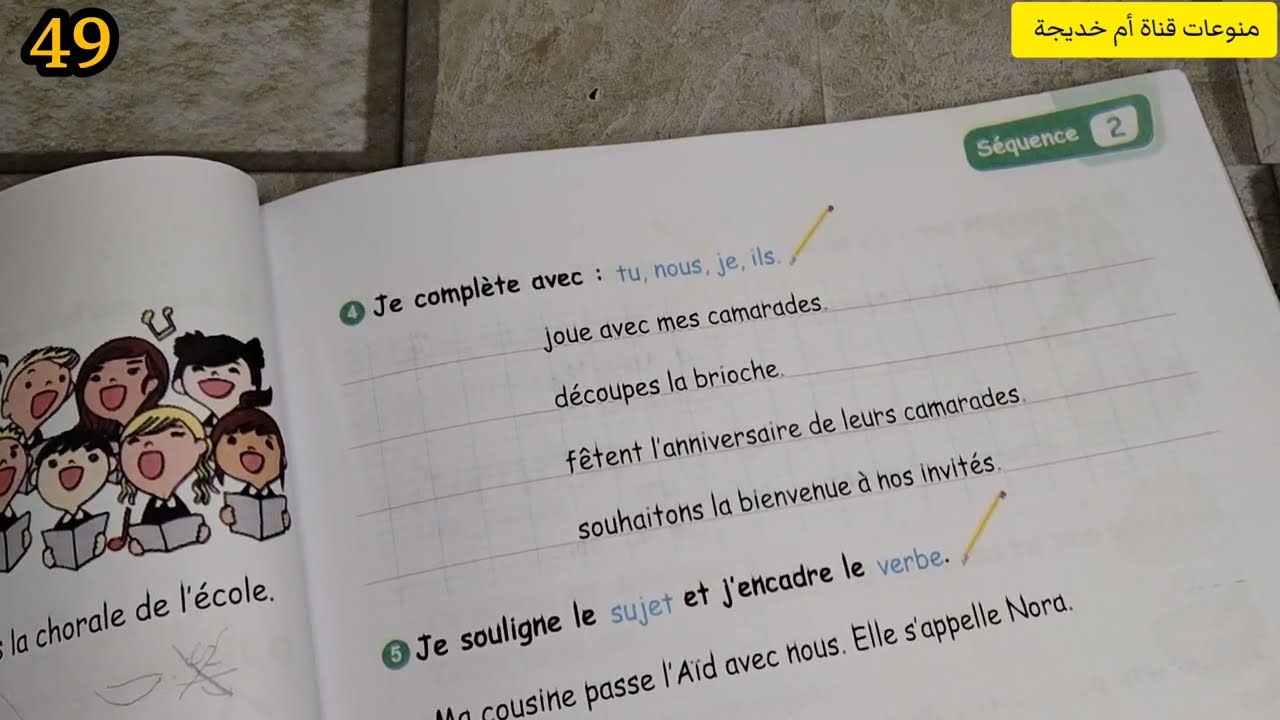 49
منوعات قناة أم خديجة
Séquence 2
4 Je complète avec : tu, nous, je, ils.
joue avec mes camarades.
découpes la brioche.
fêtent l'anniversaire de leurs camarades.
souhaitons la bienvenue à nos invités.
la chorale de l'école.
5 Je souligne le sujet et j'encadre le verbe.
Ma cousine passe l'Aïd avec nous. Elle s'appelle Nora.